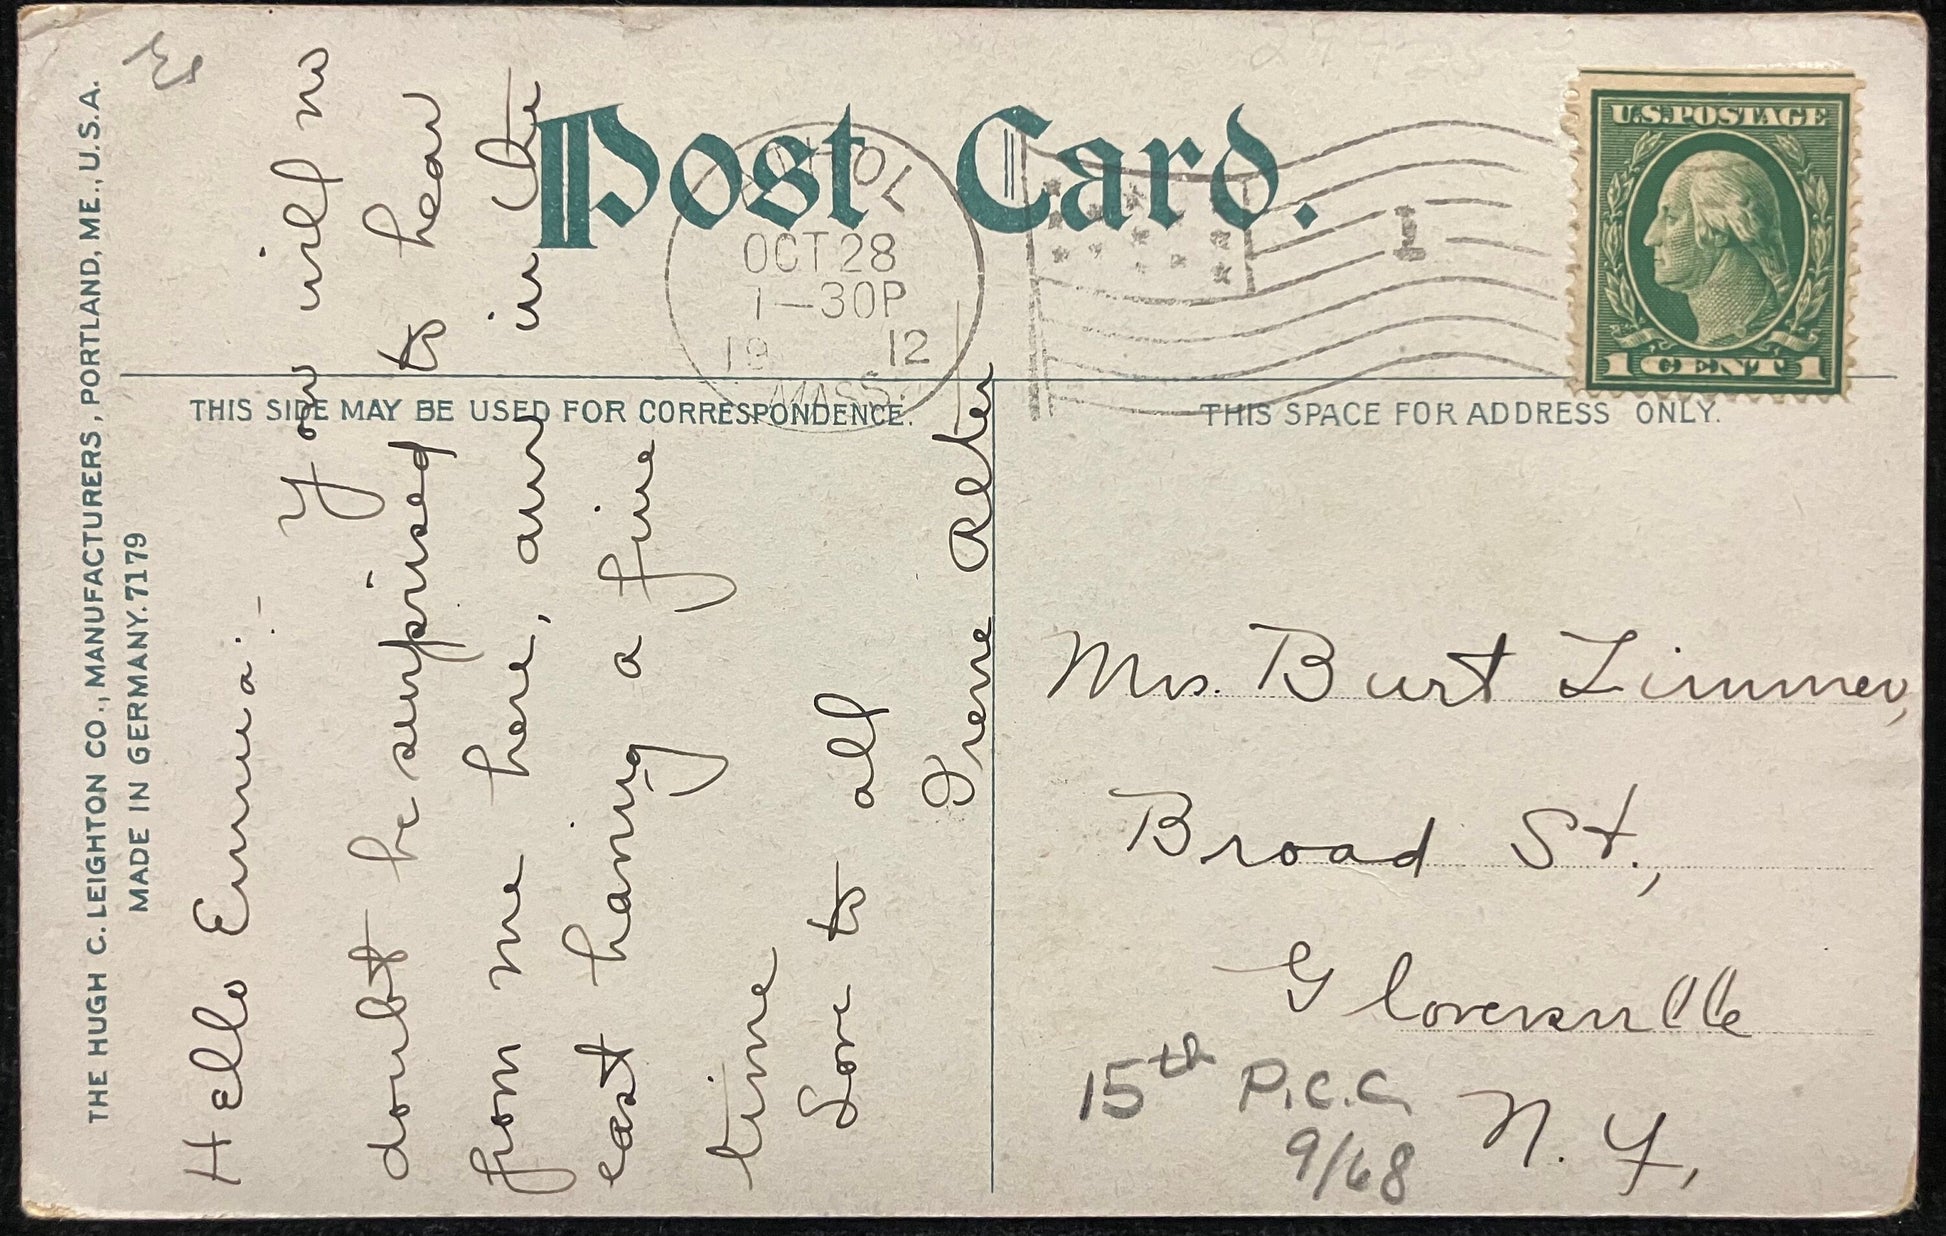 THE HUGH C. LEIGHTON CO., MANUFACTURERS, PORTLAND, ME., U.S.A.
MADE IN GERMANY. 7179
Post Card.
U.S. POSTAGE
1 CENT 1
ATHOL
OCT 28
1—30P
19 12
MASS.
1
THIS SIDE MAY BE USED FOR CORRESPONDENCE.
THIS SPACE FOR ADDRESS ONLY.
Hello Emma:-
You will no
doubt be surprised to hear
from me here, am in the
east having a fine
time
Love to all
Irene Alter
Mrs. Burt Zimmer,
Broad St.,
Gloversville
N. Y.,
15th P.C.C.
9/68